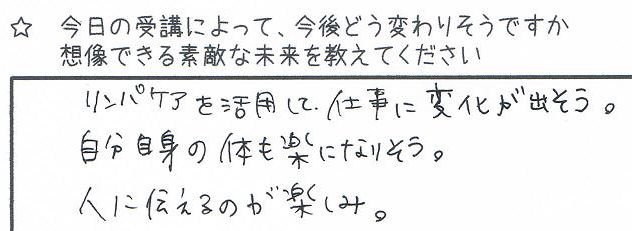 ☆ 今日の受講によって、今後どう変わりそうですか
想像できる素敵な未来を教えてください
リンパケアを活用して、仕事に変化が出そう。
自分自身の体も楽になりそう。
人に伝えるのが楽しみ。